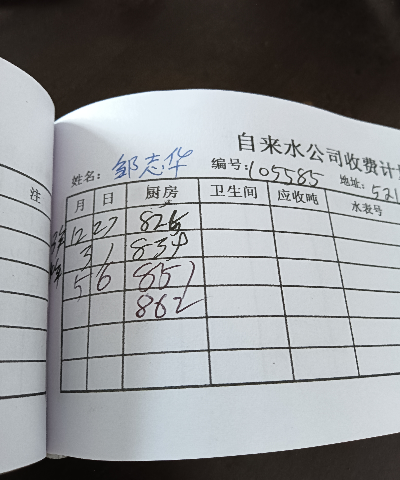 注
自来水公司收费计
姓名: 邹志华 编号: 105585 地址: 521
月 日 厨房 卫生间 应收吨 水表号
12 27 826
3 1 839
5 6 851
862